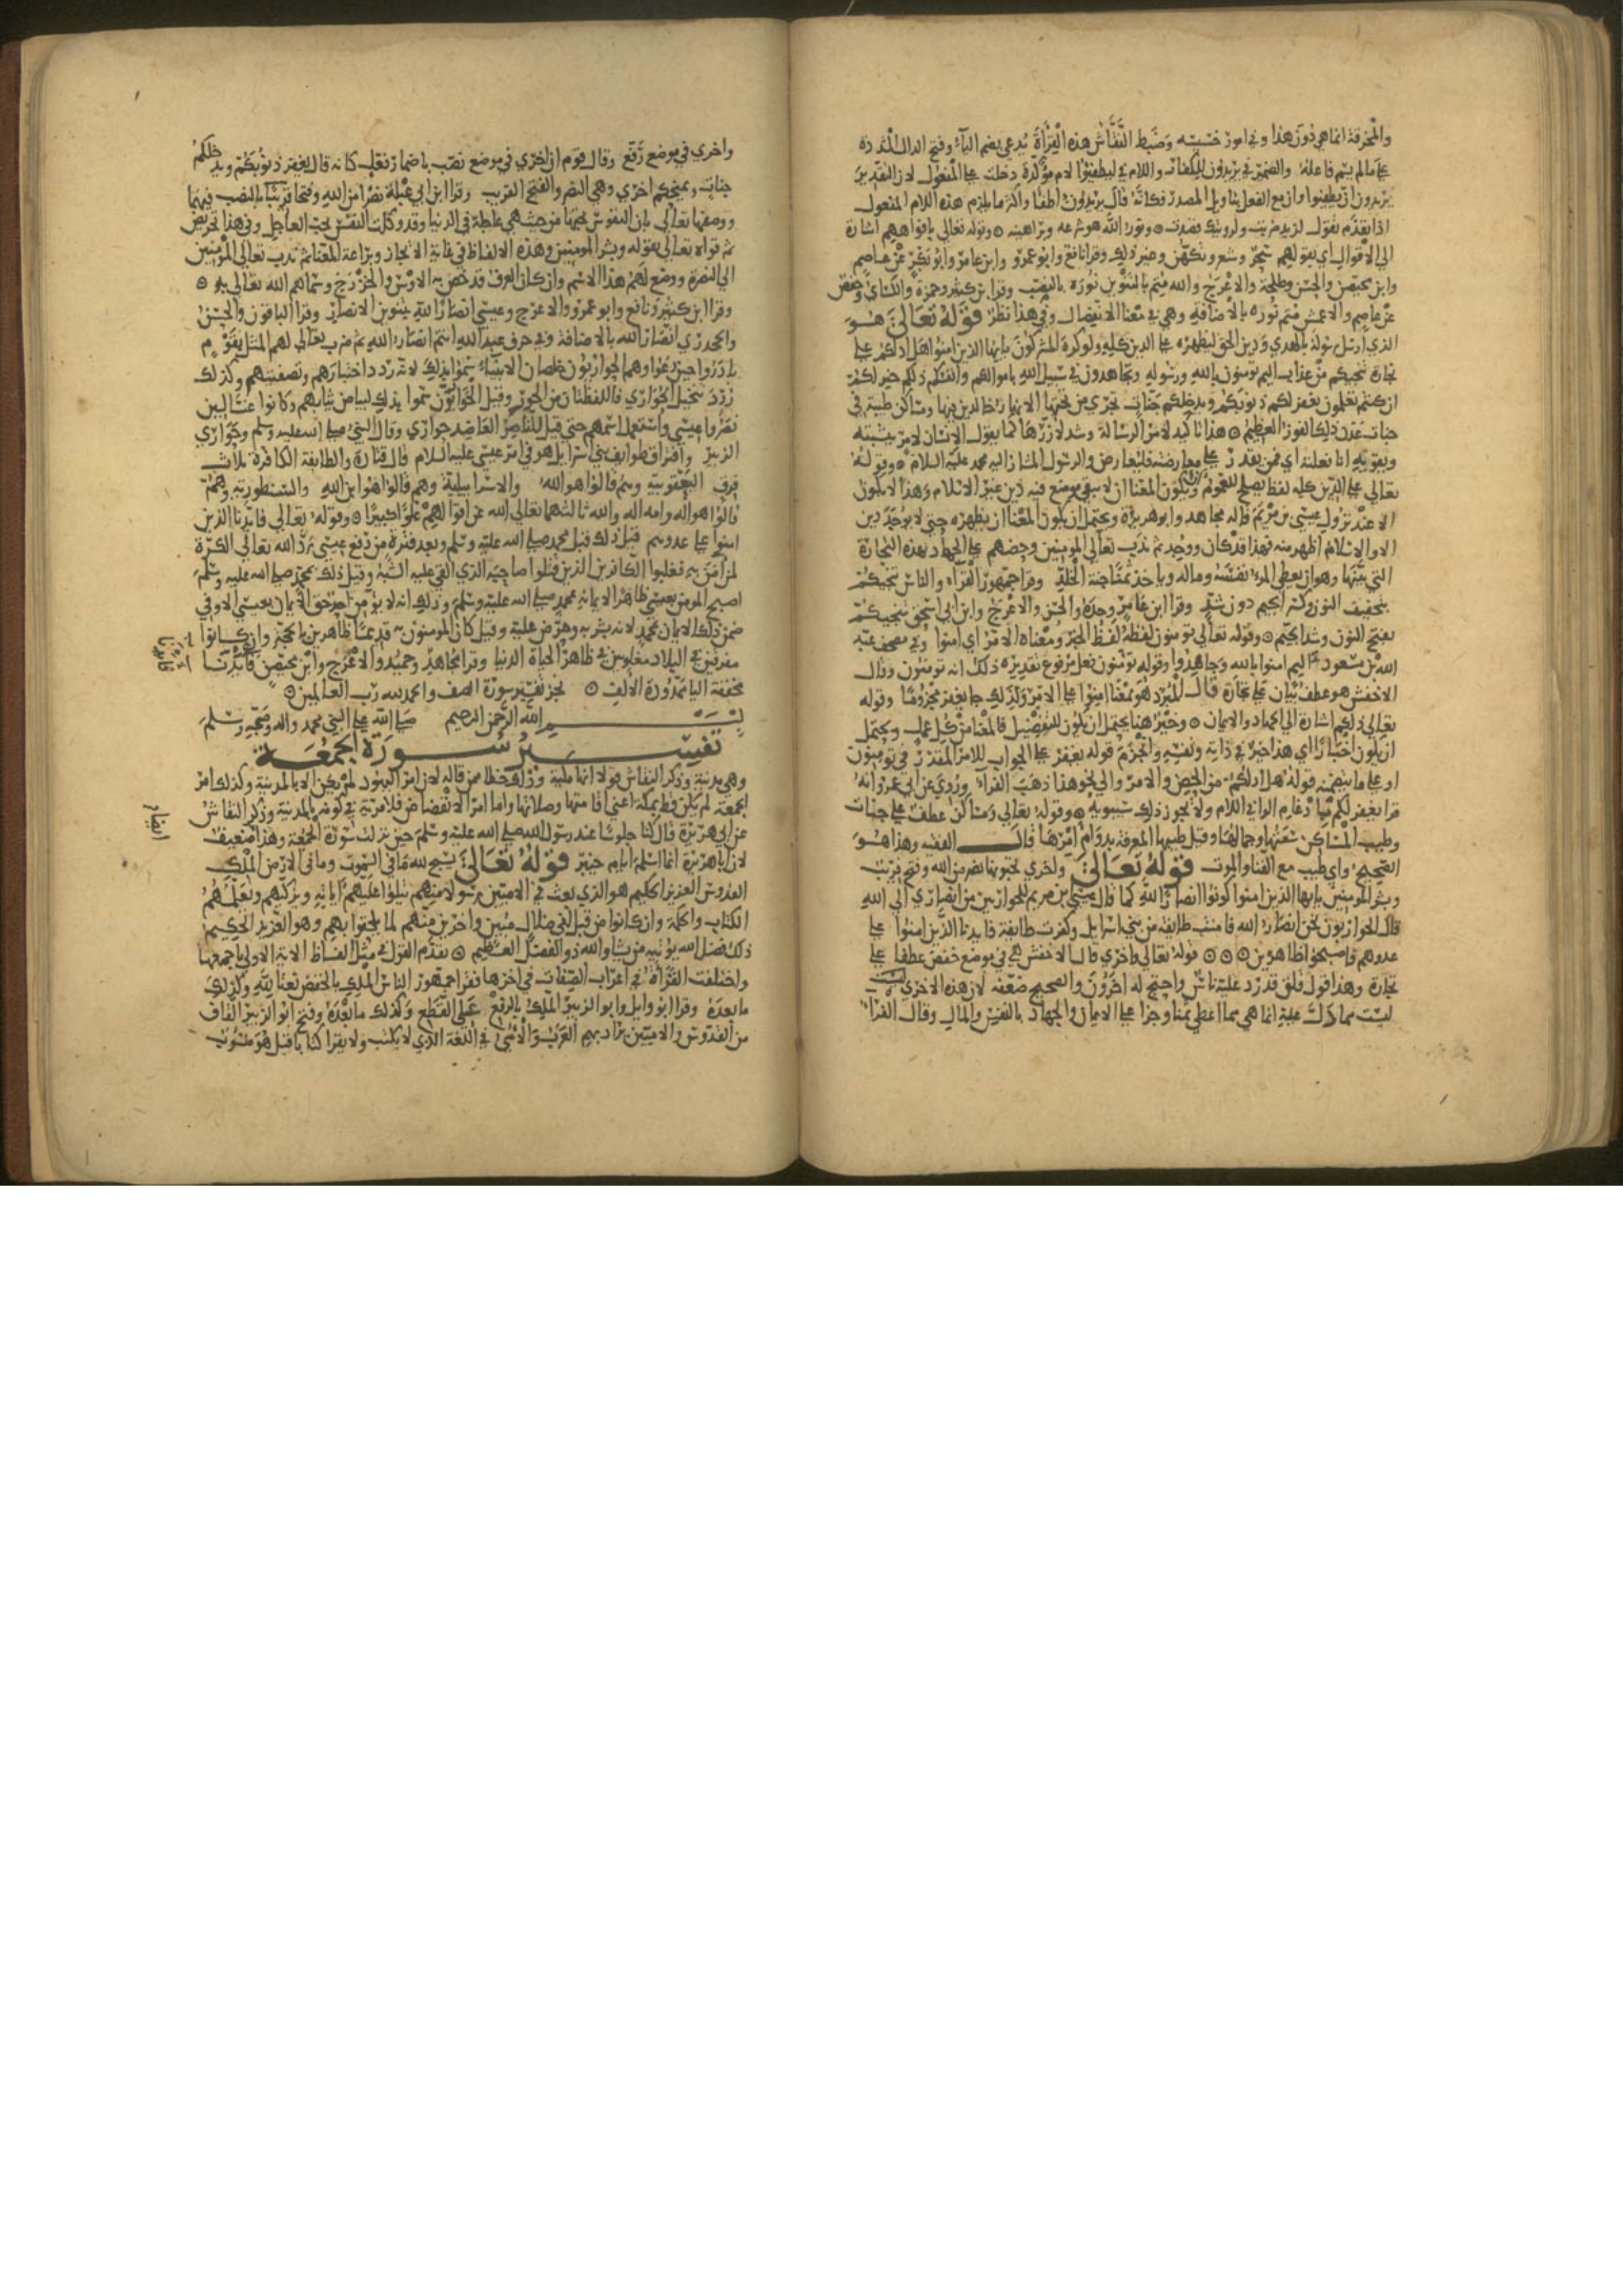 والمخرقة انما هي دون هذا وفي امور خسيسه وضبط النقاش هذه القراة يدعى بضم الياء وفتح الدال المشددة
على ما لم يسم فاعله والضمير في يريدون للكفار واللام في ليطفئوا لام مؤكدة دخلت على المفعول لان التقدير
يريدون ان يطفئوا وان مع الفعل بتاويل المصدر فكانه قال يريدون اطفا واكثر ما يلزم هذه اللام المفعول
اذا تقدم تقول لزيد ضربت ولرويتك قصدت ونور الله هو شرعه وبراهينه وقوله تعالى بافواههم اشارة
الى الاقوال اي بقولهم سحر وشعر وتكهن وغير ذلك وقرا نافع وابو عمرو وابن عامر وابو بكر عن عاصم
وابن محيصن والحسن وطلحة والاعرج والله متم بالتنوين نوره بالنصب وقرا ابن كثير وحمزة والكساي وحفص
عن عاصم والاعمش متم نوره بالاضافة وهي في معنا الانفصال وفي هذا نظر قوله تعالى هو
الذي ارسل رسوله بالهدي ودين الحق ليظهره على الدين كله ولو كره المشركون يايها الذين امنوا هل ادلكم على
تجارة تنجيكم من عذاب اليم تومنون بالله ورسوله وتجاهدون في سبيل الله باموالكم وانفسكم ذلكم خير لكم
ان كنتم تعلمون يغفر لكم ذنوبكم ويدخلكم جنات تجري من تحتها الانهار خالدين فيها ومساكن طيبة في
جنات عدن ذلك الفوز العظيم هذا تاكيد لامر الرسالة وشد لازرها كما يقول الانسان لامر يثبته
ويقويه انا فعلته اي فمن يقدر على معارضته فليعارض والرسول المشار اليه محمد عليه السلام وقوله
تعالى على الدين كله لفظ يصلح للعموم ويكون المعنا ان لا يبقى موضع فيه دين غير الاسلام وهذا لا يكون
الا عند نزول عيسى بن مريم قاله مجاهد وابو هريرة ويحتمل ان يكون المعنا ان يظهره حتى لا يوجد دين
الا والاسلام اظهر منه فهذا قد كان ووجد ثم ندب تعالى المومنين وحضهم على الجهاد بهذه التجارة
التي بينها وهو ان يعطي المرء نفسه وماله وياخذ ثمنا جنة الخلد وقرا جمهور القراء والناس تنجيكم
بتخفيف النون وكسر الجيم دون شد وقرا ابن عامر وحده والحسن والاعرج وابن ابي اسحق تنجيكم
بفتح النون وشد الجيم وقوله تعالى تومنون لفظه لفظ الخبر ومعناه الامر اي امنوا وفي مصحف عبد
الله بن مسعود اليم امنوا بالله وجاهدوا وقوله تومنون فعل مرفوع تقديره ذلك انه تومنون وقال
الاخفش هو عطف بيان على تجارة قال المبرد هو بمعنا امنوا على الامر ولذلك جا يغفر مجزوما وقوله
تعالى ذلكم اشارة الى الجهاد والايمان وخير هنا يحتمل ان يكون للتفضيل فالمعنا من كل عمل ويحتمل
ان يكون اخبارا اي هذا خير في ذاته ونفسه وانجزم قوله يغفر على الجواب للامر المقدر في تومنون
او على ما يتضمنه قوله هل ادلكم من الحض والامر والى نحو هذا ذهب الفراء وروي عن ابي عمرو انه
قرا يغفر لكم بادغام الرا في اللام ولا يجوز ذلك سيبويه وقوله تعالى ومساكن عطف على جنات
وطيب المساكن سعتها وجمالها وقيل طيبها المعرفة بدوام امرها قال الفقيه وهذا هو
الصحيح واي طيب مع الفنا والموت قوله تعالى واخري تحبونها نصر من الله وفتح قريب
وبشر المومنين يايها الذين امنوا كونوا انصارا لله كما قال عيسى بن مريم للحواريين من انصاري الى الله
قال الحواريون نحن انصار الله فامنت طايفة من بني اسرايل وكفرت طايفة فايدنا الذين امنوا على
عدوهم فاصبحوا ظاهرين قوله تعالى واخري قال الاخفش هي في موضع خفض عطفا على
تجارة وهذا قول قلق قد رد عليه ناس واحتج له اخرون والصحيح ضعفه لان هذه الاخري ليست
ليست مما دل عليه انما هي مما اعطي ثمنا وجزا على الايمان والجهاد بالنفس والمال وقال الفراء
واخري في موضع رفع وقال قوم ان اخري في موضع نصب باضمار فعل كانه قال يغفر ذنوبكم ويدخلكم
جنات ويمنحكم اخري وهي النصر والفتح القريب وقرا ابن ابي عبلة نصرا من الله وفتحا قريبا بالنصب فيهما
ووصفها تعالى بان النفوس تحبها من حيث هي عاجلة في الدنيا وقد وكلت النفس بحب العاجل وفي هذا تحريض
ثم قواه تعالى بقوله وبشر المومنين وهذه الالفاظ في غاية الايجاز وبراعة المعنا ثم ندب تعالى المومنين
الى النصرة ووضع لهم هذا الاسم وان كان العرف قد خص به الاوس والخزرج وسماهم الله تعالى به
وقرا ابن كثير ونافع وابو عمرو والاعرج وعيسى انصارا لله بتنوين الانصار وقرا الباقون والحسن
والجحدري انصار الله بالاضافة وفي حرف عبد الله انتم انصار الله ثم ضرب تعالى لهم المثل بقوم
بادروا حين دعوا وهم الحواريون خلصان الانبياء سموا بذلك لانه ردد اختبارهم وتصفيتهم وكذلك
ردد تنخيل الحواري فاللفظتان من الحور وقيل الحواريون سموا بذلك لبياض ثيابهم وكانوا غسالين
نصروا عيسى واستعمل اسمهم حتى قيل للناصر العاضد حواري وقال النبي صلى الله عليه وسلم وحواري
الزبير وافتراق طوايف بني اسرايل هو في امر عيسى عليه السلام قال قتادة والطايفة الكافرة ثلاث
فرق اليعقوبية وهم قالوا هو الله والاسرايلية وهم قالوا هو ابن الله والنسطورية وهم
قالوا هو اله وامه اله والله ثالثهما تعالى الله عن اقوالهم علوا كبيرا وقوله تعالى فايدنا الذين
امنوا على عدوهم قيل ذلك قبل محمد صلى الله عليه وسلم وبعد فترة من رفع عيسى رد الله تعالى الكرة
لمن امن به فغلبوا الكافرين الذين قتلوا صاحبه الذي القي عليه الشبه وقيل ذلك بمحمد صلى الله عليه وسلم
اصبح المومن بعيسى ظاهرا لايمانه بمحمد صلى الله عليه وسلم وذلك انه لا يومن احد حق الايمان بعيسى الا وفي
ضمن ذلك الايمان بمحمد لانه بشر به وحرض عليه وقيل كان المومنون به قديما ظاهرين بالحجة وان كانوا
مفرقين في البلاد مغلوبين في ظاهر الحياة الدنيا وقرا مجاهد وحميد والاعرج وابن محيصن فايدنا
مخففة اليا ممدودة الالف نجز تفسير سورة الصف والحمد لله رب العالمين
بسم الله الرحمن الرحيم صلى الله على النبي محمد واله وصحبه وسلم
تفسير سورة الجمعة
وهي مدنية وذكر النقاش قولا انها مكية وذلك خطا ممن قاله لان امر اليهود لم يكن الا بالمدينة وكذلك امر
الجمعة لم يكن قط بمكة اعني اقامتها وصلاتها واما امر الانفضاض فلا مرية في كونه بالمدينة وذكر النقاش
عن ابي هريرة قال كنا جلوسا عند رسول الله صلى الله عليه وسلم حين نزلت سورة الجمعة وهذا ضعيف
لان ابا هريرة انما اسلم ايام خيبر قوله تعالى يسبح لله ما في السموت وما في الارض الملك
القدوس العزيز الحكيم هو الذي بعث في الاميين رسولا منهم يتلوا عليهم اياته ويزكيهم ويعلمهم
الكتاب والحكمة وان كانوا من قبل لفي ضلال مبين واخرين منهم لما يلحقوا بهم وهو العزيز الحكيم
ذلك فضل الله يوتيه من يشا والله ذو الفضل العظيم تقدم القول في مثل الفاظ الاية الاولى باجمعها
واختلفت القراة في اعراب الصفات في اخرها فقرا جمهور الناس الملك بالخفض نعتا لله وكذلك
ما بعده وقرا ابو وايل وابو الزبير الملك بالرفع على القطع وكذلك ما بعده وفتح ابو الزبير القاف
من القدوس والاميين يراد بهم العرب والامي في اللغة الذي لا يكتب ولا يقرا كتابا قيل هو منسوب